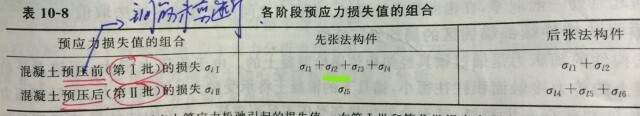 表 10-8 各阶段预应力损失值的组合
预应力损失值的组合 先张法构件 后张法构件
混凝土预压前(第Ⅰ批)的损失 σlⅠ σl1+σl2+σl3+σl4 σl1+σl2
混凝土预压后(第Ⅱ批)的损失 σlⅡ σl5 σl4+σl5+σl6